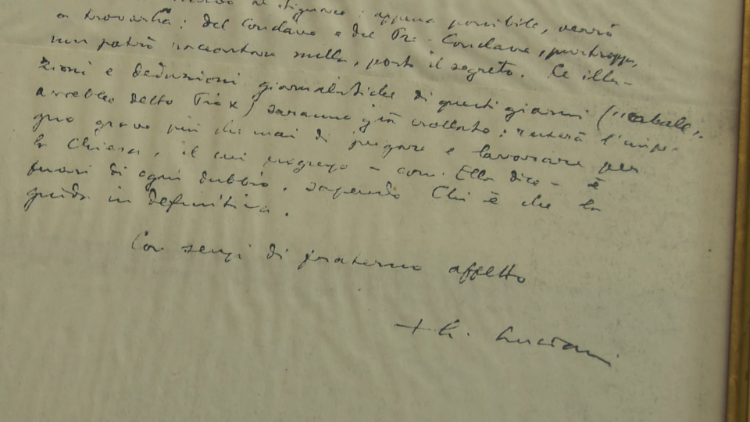 appena possibile, verrò
a trovarla: del Conclave e del Pre-Conclave, purtroppo,
non potrò raccontare nulla, posto il segreto. Le illa-
zioni e deduzioni giornalistiche di questi giorni ("cabale",
avrebbe detto Pio X) saranno già crollate: resterà l'impe-
gno grave più che mai di pregare e lavorare per
la Chiesa, il cui progresso - come Ella dice - è
fuori di ogni dubbio, sapendo Chi è che la
guida in definitiva.
Con sensi di fraterno affetto
+ A. Luciani